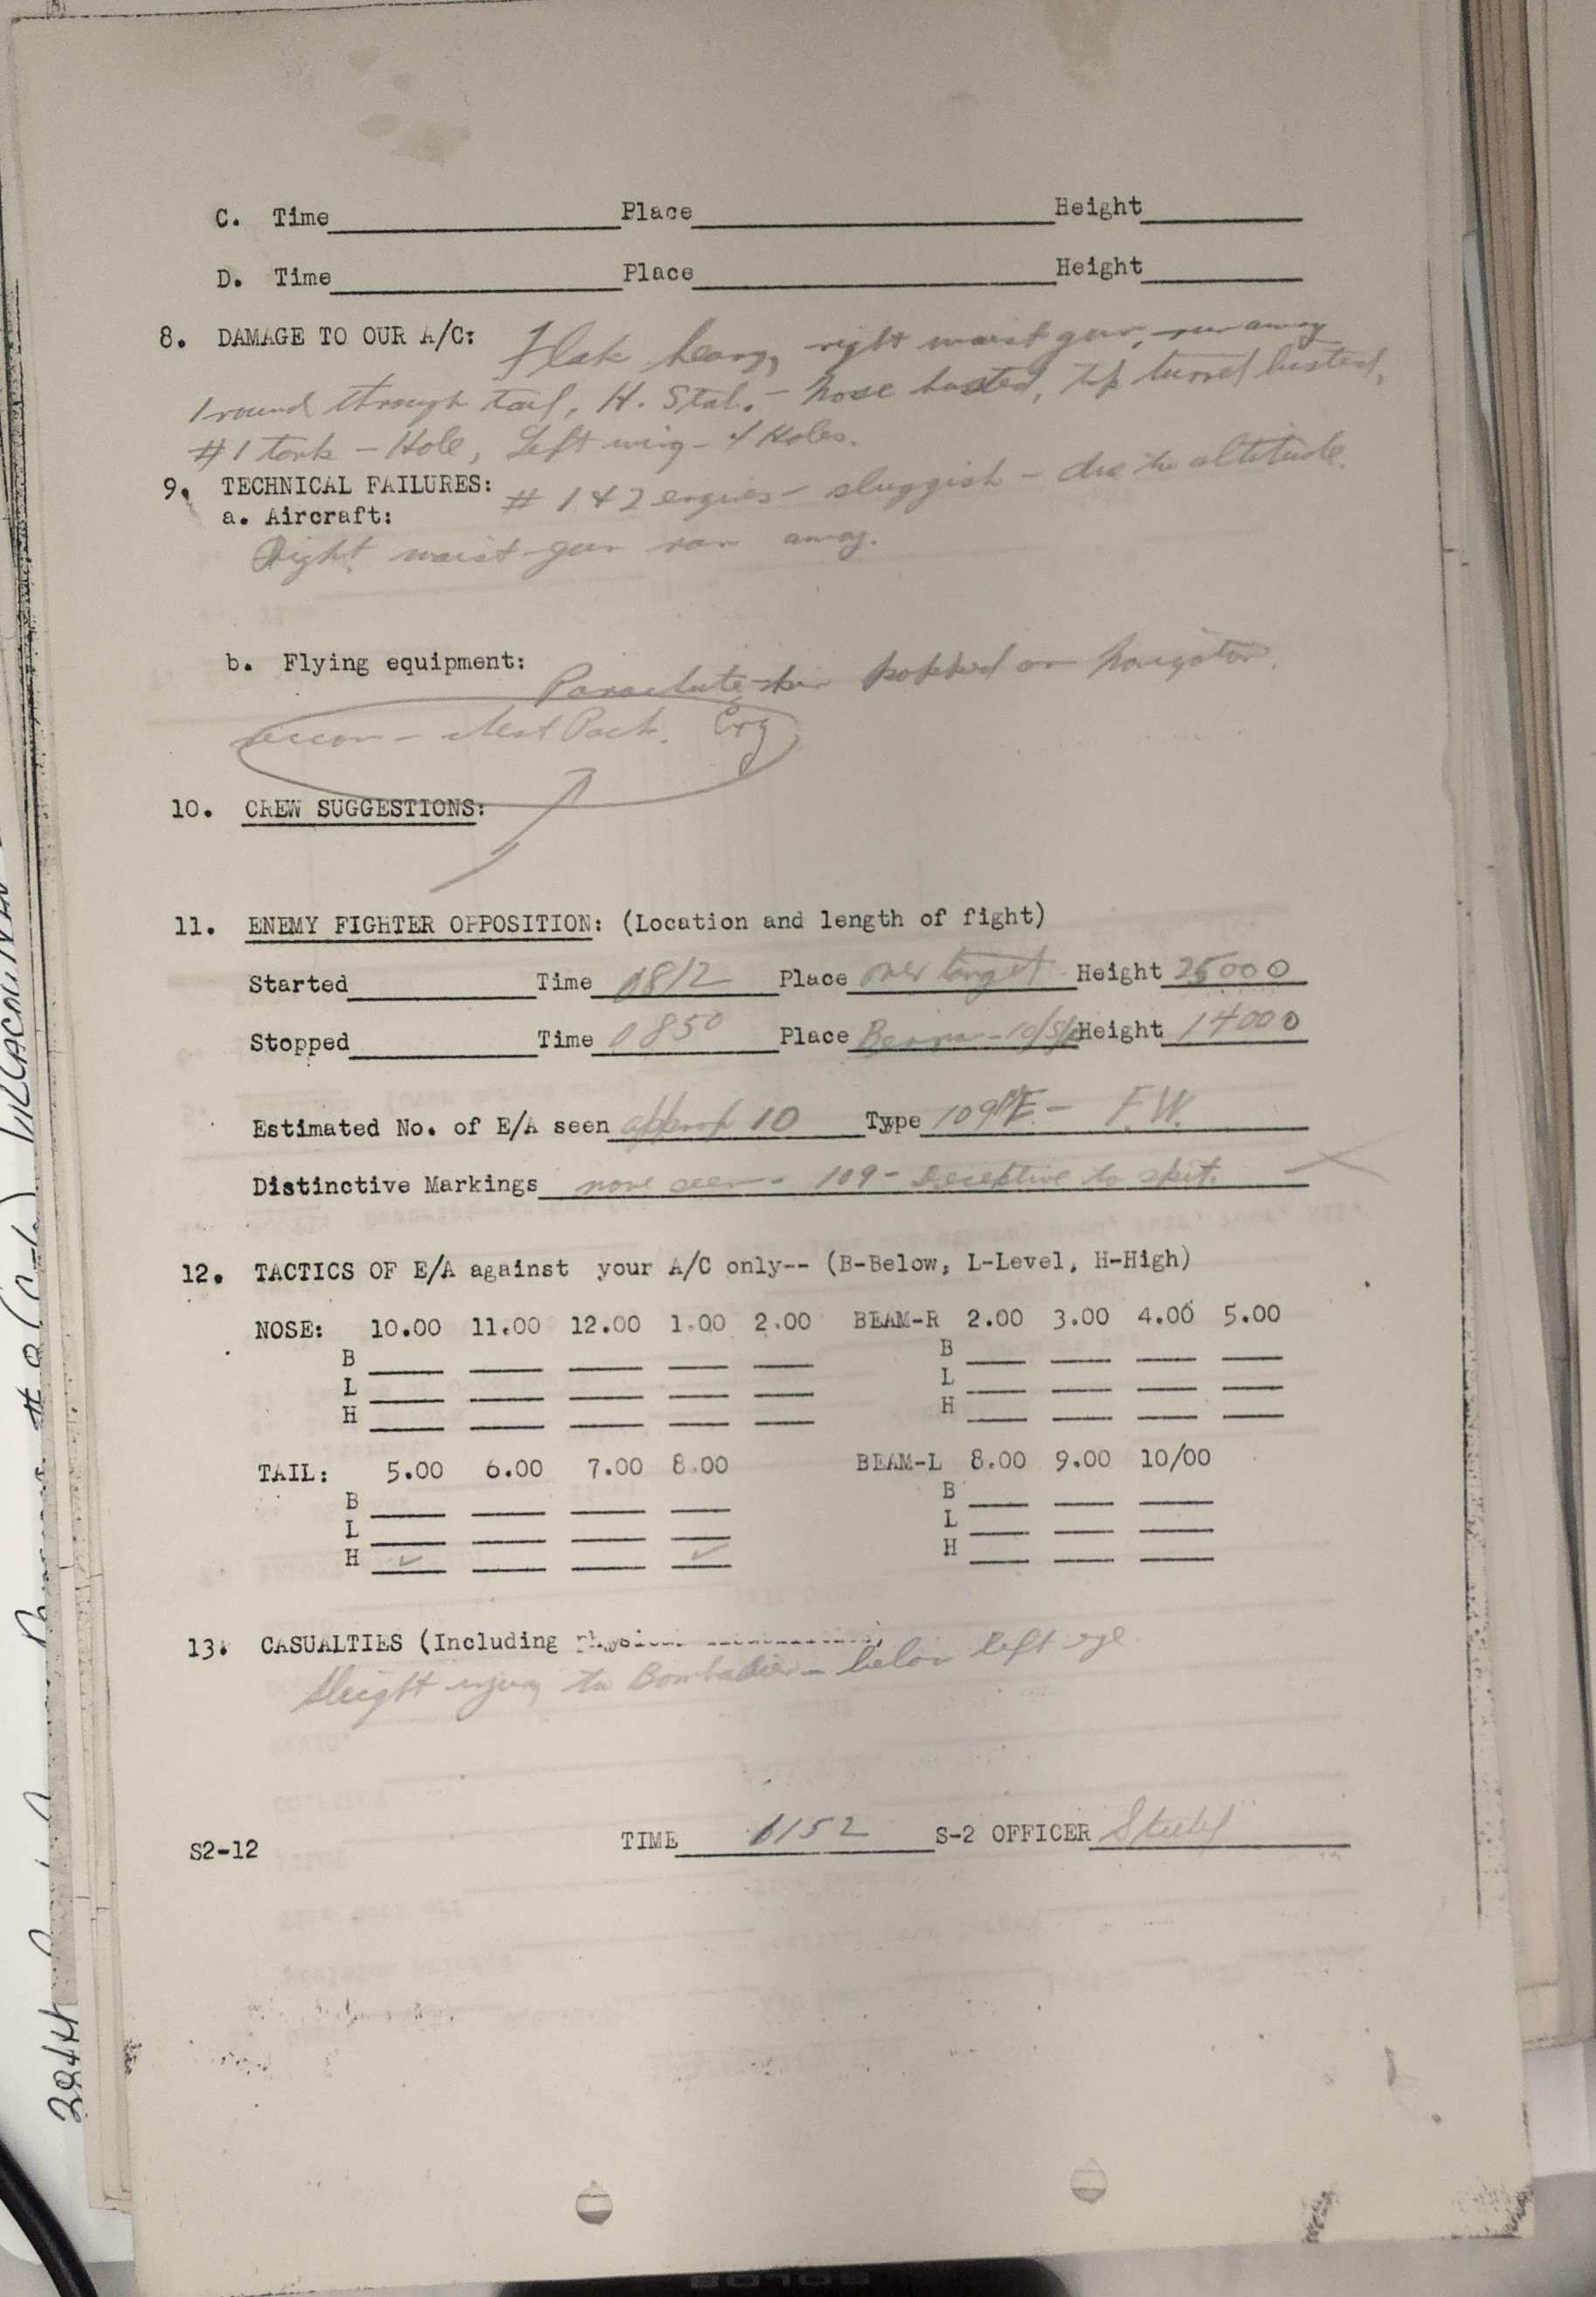 C. Time Place Height
D. Time Place Height
8. DAMAGE TO OUR A/C: Flak heavy, right waist gun, run away
1 round through tail, H. Stab. - Nose busted, Top turret busted,
#1 tank - Hole, Left wing - 4 Holes.
9. TECHNICAL FAILURES: # 1 & 2 engines - sluggish - due to altitude.
a. Aircraft:
Right waist gun ran away.
b. Flying equipment: Parachute popped on navigator.
Pack.
10. CREW SUGGESTIONS:
11. ENEMY FIGHTER OPPOSITION: (Location and length of fight)
Started Time 0812 Place over target Height 25000
Stopped Time 0850 Place Height 14000
Estimated No. of E/A seen approx 10 Type 109 ME - F.W.
Distinctive Markings none seen - 109 - Deceptive to spit.
12. TACTICS OF E/A against your A/C only-- (B-Below, L-Level, H-High)
NOSE: 10.00 11.00 12.00 1.00 2.00 BEAM-R 2.00 3.00 4.00 5.00
B B
L L
H H
TAIL: 5.00 6.00 7.00 8.00 BEAM-L 8.00 9.00 10/00
B B
L L
H ✓ ✓ H
13. CASUALTIES (Including
Sleight injury to Bombadier - below left eye
S2-12 TIME 1152 S-2 OFFICER